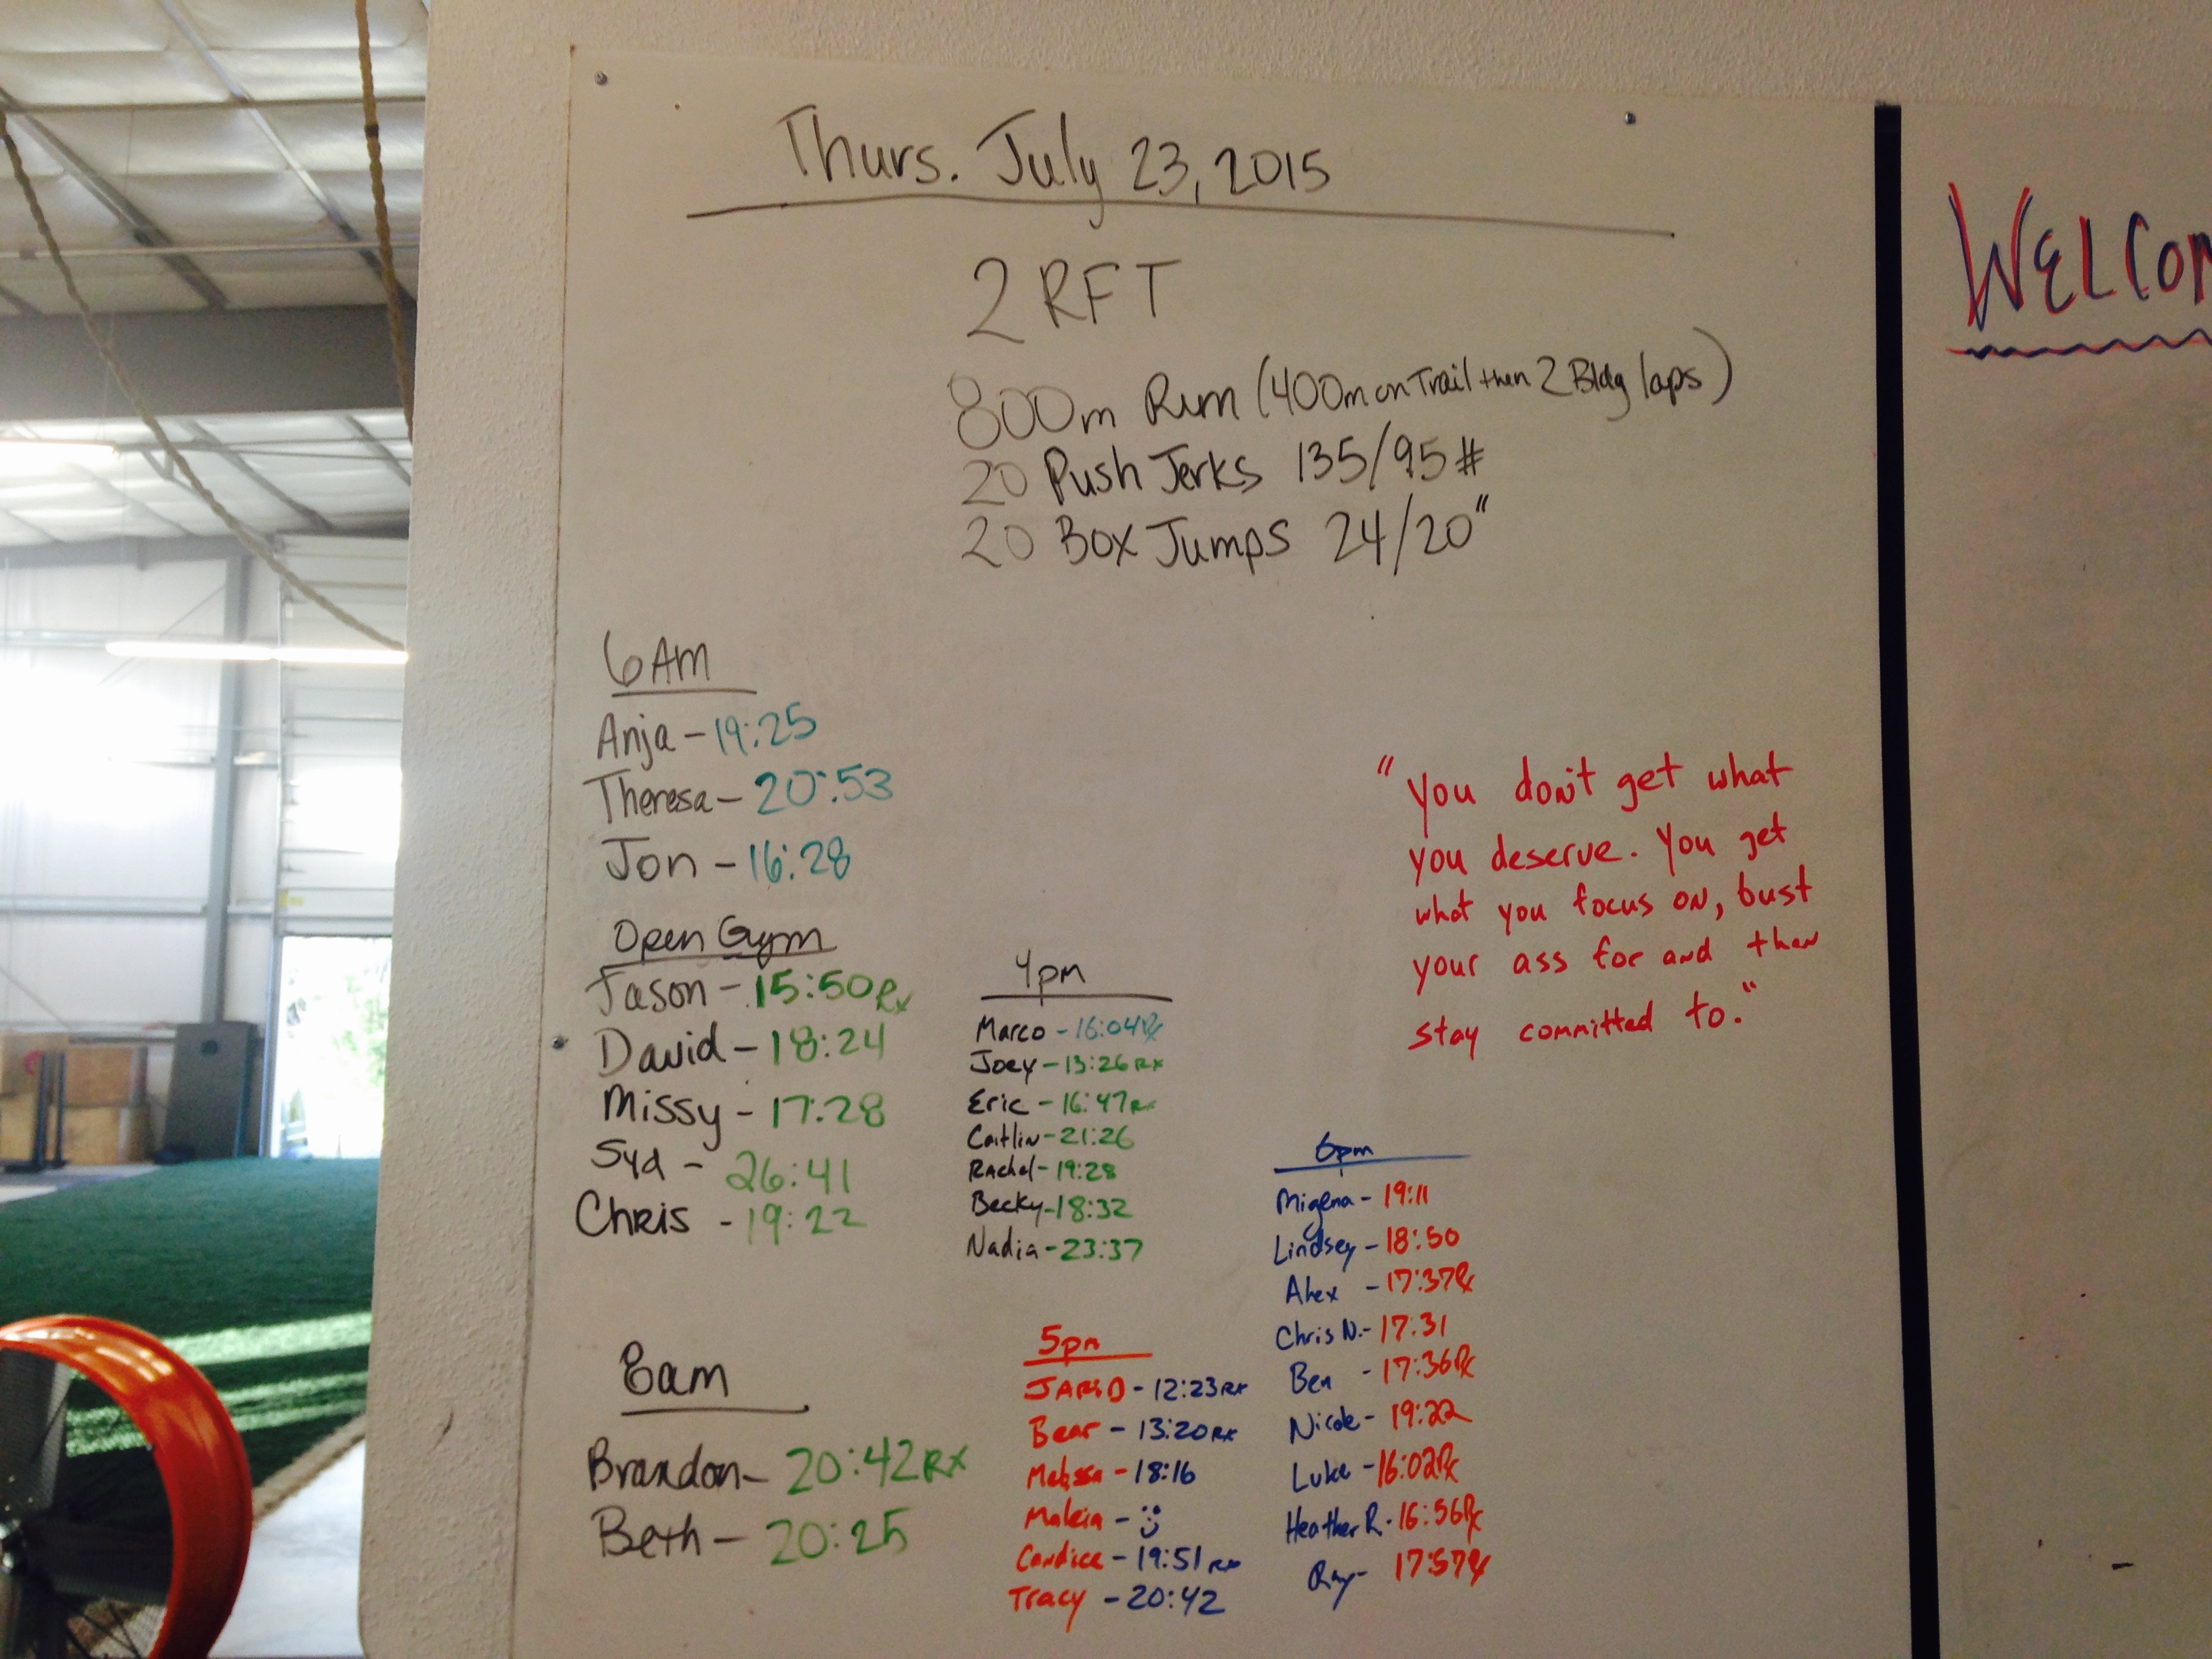 Thurs. July 23, 2015
2 RFT
800m Run (400m on Trail then 2 Bldg laps)
20 Push Jerks 135/95#
20 Box Jumps 24/20"
6AM
Anja - 19:25
Theresa - 20:53
Jon - 16:28
Open Gym
Jason - 15:50 Rx
David - 18:24
Missy - 17:28
Syd - 26:41
Chris - 19:22
8am
Brandon - 20:42 RX
Beth - 20:25
4pm
Marco - 16:04 Rx
Joey - 13:26 RX
Eric - 16:47 Rx
Caitlin - 21:26
Rachel - 19:28
Becky - 18:32
Nadia - 23:37
5pm
JARED - 12:23 RX
Bear - 13:20 RX
Melissa - 18:16
Malcia - :)
Candice - 19:51 RX
Tracy - 20:42
6pm
Migena - 19:11
Lindsey - 18:50
Alex - 17:37 Rx
Chris N. - 17:31
Ben - 17:36 Rx
Nicole - 19:22
Luke - 16:02 Rx
Heather R. - 16:56 Rx
Ray - 17:57 Rx
"You don't get what
you deserve. You get
what you focus on, bust
your ass for and then
stay committed to."
WELCOM